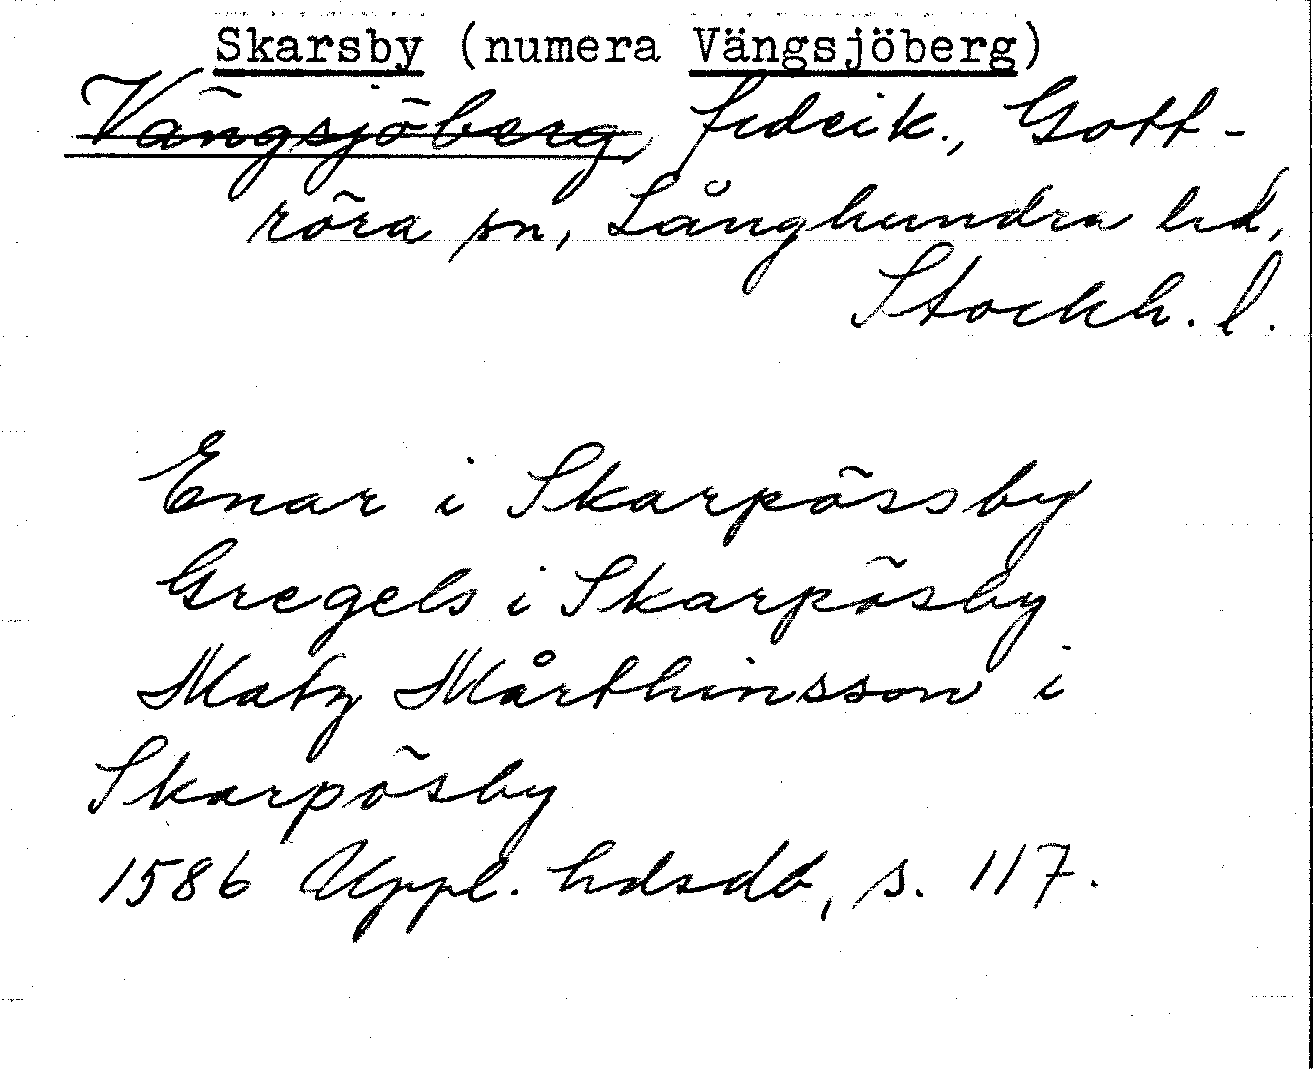 Skarsby (numera Vängsjöberg)
Vängsjöberg, fideik., Gott-
röra sn, Långhundra hd,
Stockh. l.
Enar i Skarpössby
Gregels i Skarpösby
Matz Mårthinsson i
Skarpösby
1586 Uppl. hdsdb, s. 117.